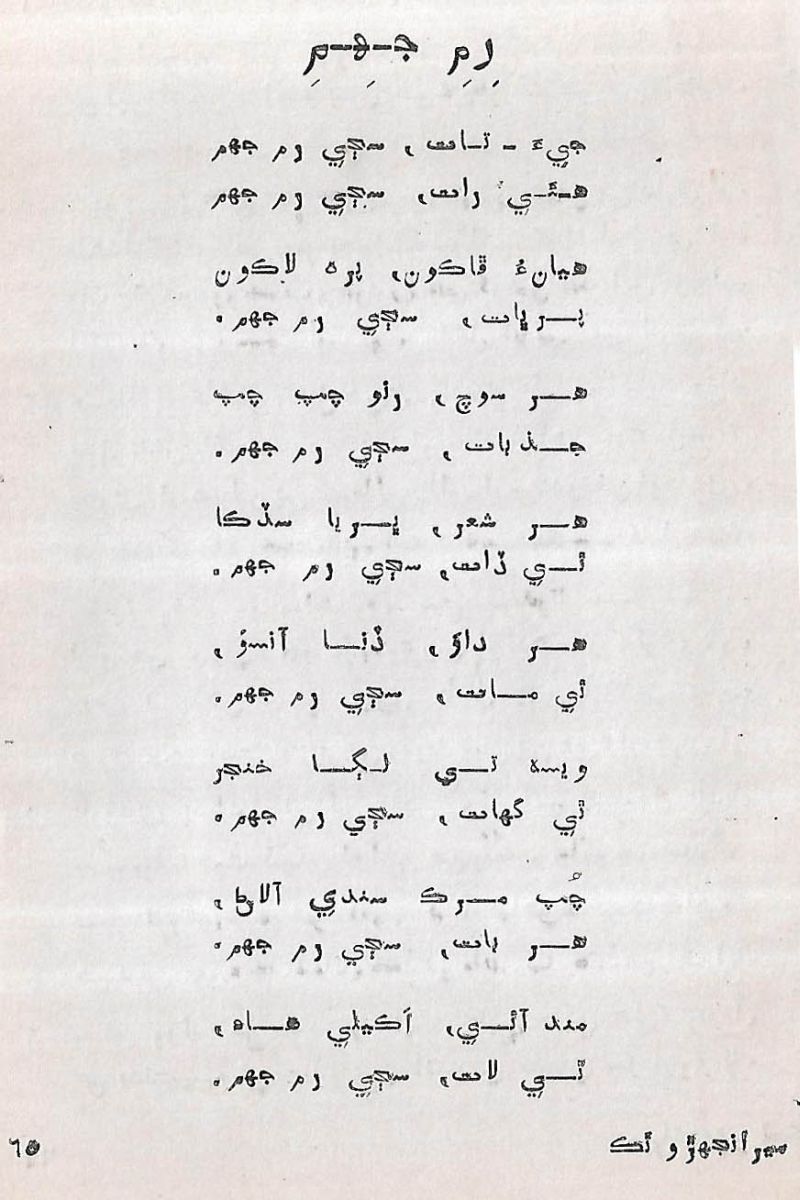 رِمِ جِهِمِ
جيءَ - تات، سڄي رم جهم
هئي رات، سڄي رم جهم
هيانءُ ڦاڪون، پره لاکون
پرڀات، سڄي رم جهم.
هر سوچ، رنو چپ چپ
جذبات، سڄي رم جهم.
هر شعر، ڀريا سڏڪا
ٿي ڏات، سڄي رم جهم.
هر داؤ، ڏنا آنسو،
ٿي مات، سڄي رم جهم.
ويسه تي لڳا خنجر
ٿي گهات، سڄي رم جهم.
چُپ مرڪ سندي آلاڻ،
هر بات، سڄي رم جهم.
مند آئي، اَڪيلي هاه،
ٿي لات، سڄي رم جهم.
٦٥